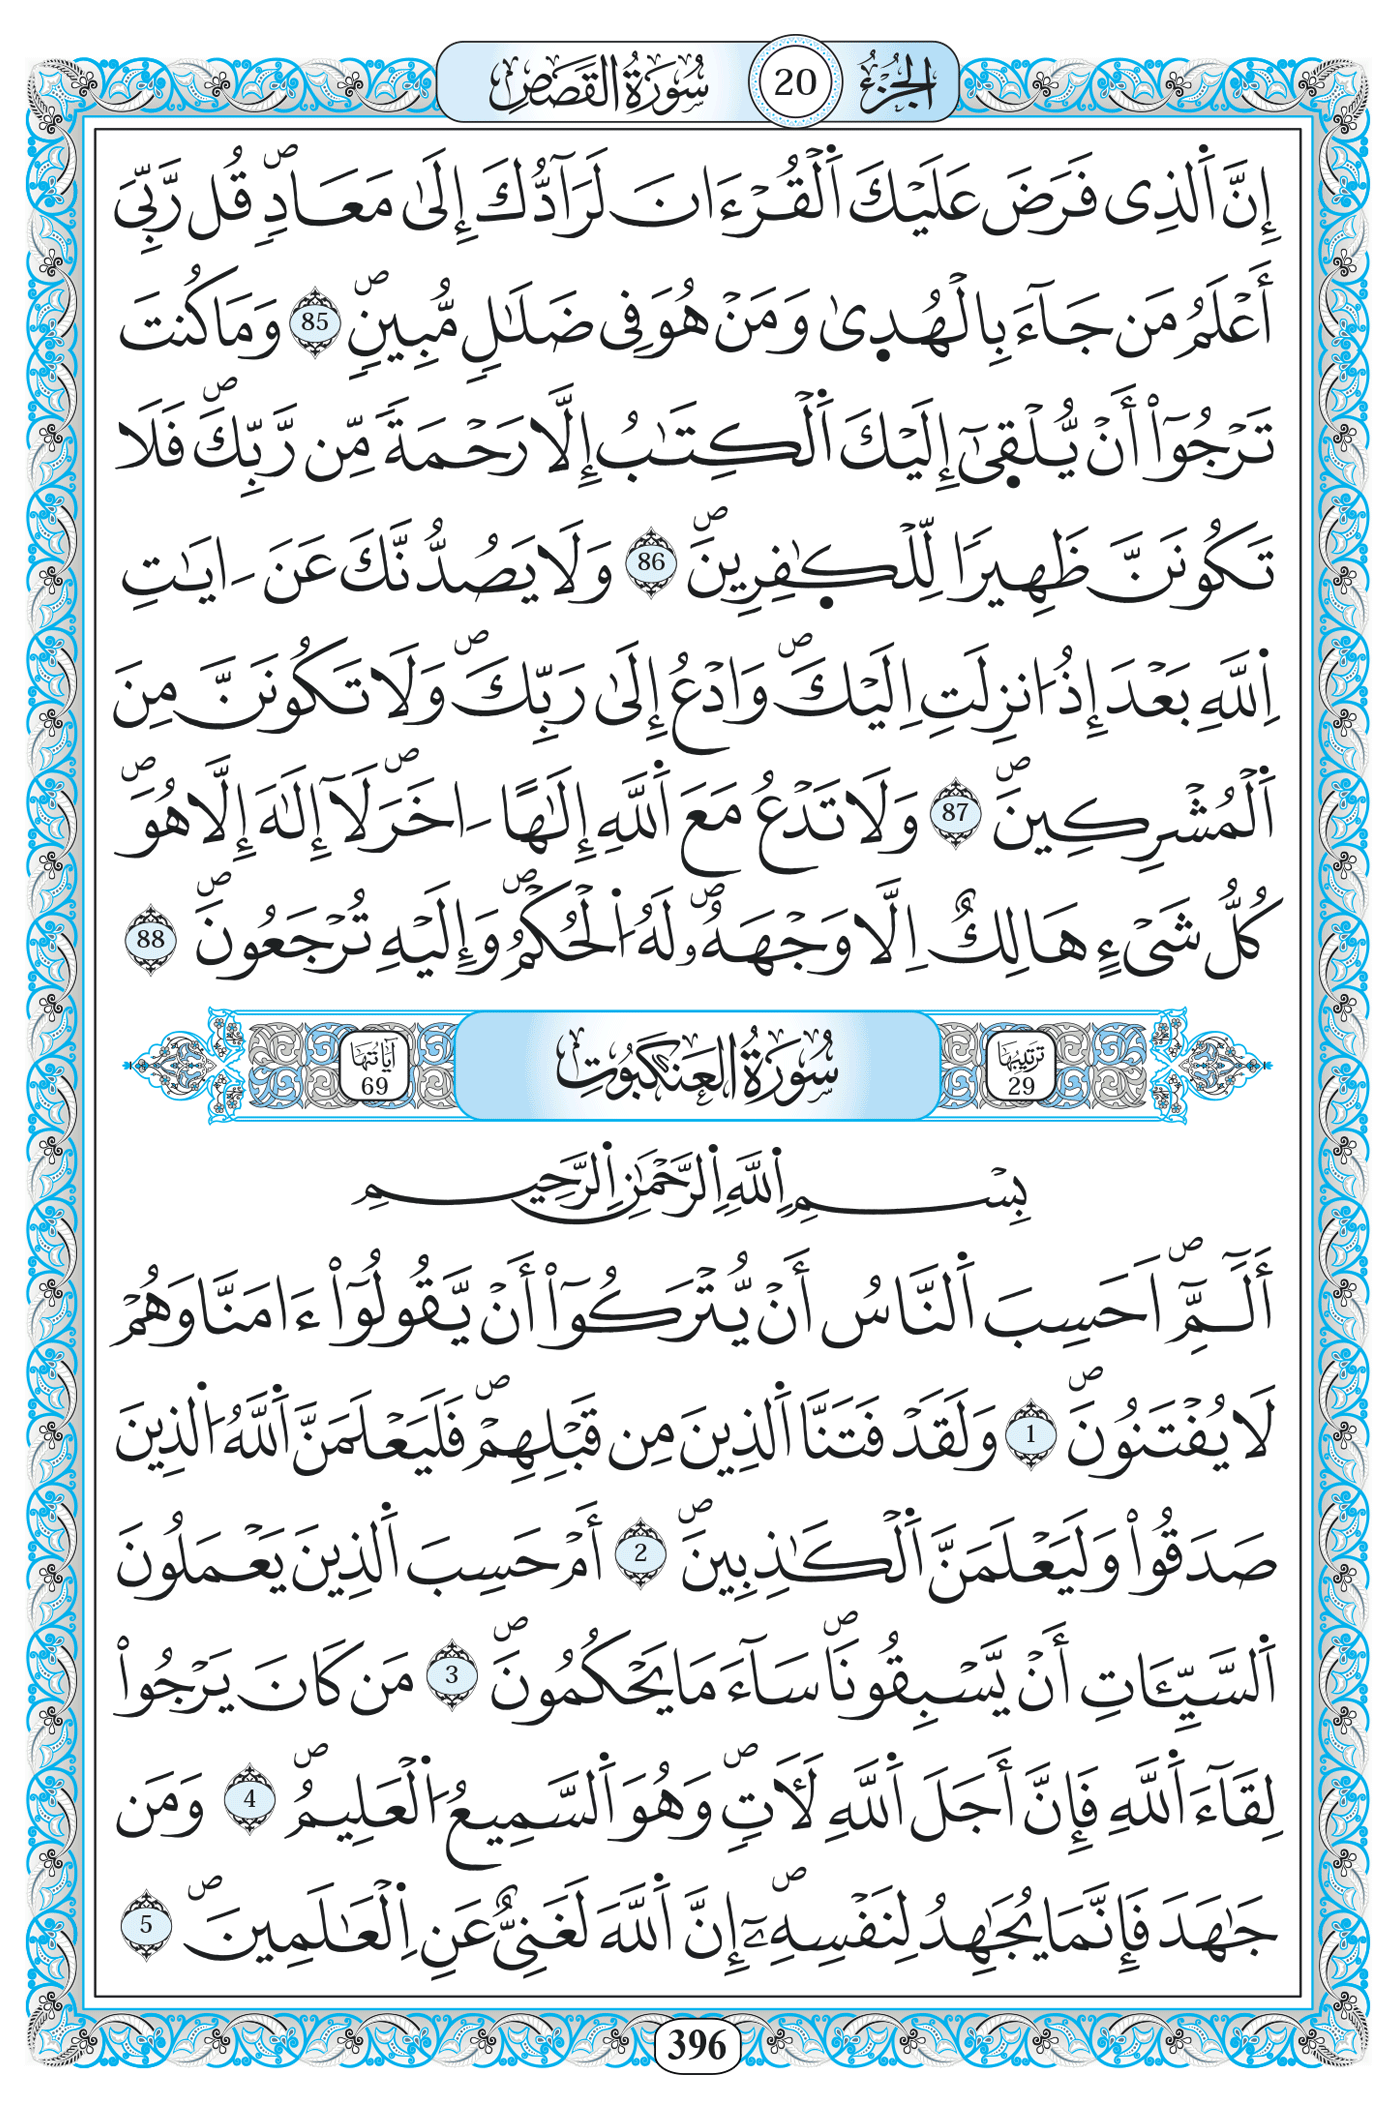 الجزء 20 سورة القصص
إِنَّ اَ۬لذِے فَرَضَ عَلَيْكَ اَ۬لْقُرْءَانَ لَرَآدُّكَ إِلَىٰ مَعَادٖۖ قُل رَّبِّيَ
أَعْلَمُ مَن جَآءَ بِالْهُد۪ىٰ وَمَنْ هُوَ فِے ضَلَٰلٖ مُّبِينٖۖ 85 وَمَا كُنتَ
تَرْجُوٓاْ أَنْ يُّلْق۪ىٰٓ إِلَيْكَ اَ۬لْكِتَٰبُ إِلَّا رَحْمَةٗ مِّن رَّبِّكَۖ فَلَا
تَكُونَنَّ ظَهِيراٗ لِّلْكٰ۪فِرِينَۖ 86 وَلَا يَصُدُّنَّكَ عَنَ اٰيَٰتِ
اِ۬للَّهِ بَعْدَ إِذُ ا۟نزِلَتِ اِلَيْكَۖ وَادْعُ إِلَىٰ رَبِّكَۖ وَلَا تَكُونَنَّ مِنَ
اَ۬لْمُشْرِكِينَۖ 87 وَلَا تَدْعُ مَعَ اَ۬للَّهِ إِلَٰهاً اٰخَرَۖ لَآ إِلَٰهَ إِلَّا هُوَۖ
كُلُّ شَےْءٍ هَالِكٌ اِلَّا وَجْهَهُۥۖ لَهُ اُ۬لْحُكْمُۖ وَإِلَيْهِ تُرْجَعُونَۖ 88
ترتيبها 29 سورة العنكبوت آياتها 69
بِسْمِ اِ۬للَّهِ اِ۬لرَّحْمَٰنِ اِ۬لرَّحِيمِ
أَلَٓمِّٓۖ اَحَسِبَ اَ۬لنَّاسُ أَنْ يُّتْرَكُوٓاْ أَنْ يَّقُولُوٓاْ ءَامَنَّا وَهُمْ
لَا يُفْتَنُونَۖ 1 وَلَقَدْ فَتَنَّا اَ۬لذِينَ مِن قَبْلِهِمْۖ فَلَيَعْلَمَنَّ اَ۬للَّهُ اُ۬لذِينَ
صَدَقُواْ وَلَيَعْلَمَنَّ اَ۬لْكَٰذِبِينَۖ 2 أَمْ حَسِبَ اَ۬لذِينَ يَعْمَلُونَ
اَ۬لسَّيِّـَٔاتِ أَنْ يَّسْبِقُونَاۖ سَآءَ مَا يَحْكُمُونَۖ 3 مَن كَانَ يَرْجُواْ
لِقَآءَ اَ۬للَّهِ فَإِنَّ أَجَلَ اَ۬للَّهِ لَأٓتٖۖ وَهُوَ اَ۬لسَّمِيعُ اُ۬لْعَلِيمُۖ 4 وَمَن
جَٰهَدَ فَإِنَّمَا يُجَٰهِدُ لِنَفْسِهِۦٓۖ إِنَّ اَ۬للَّهَ لَغَنِيٌّ عَنِ اِ۬لْعَٰلَمِينَۖ 5
396